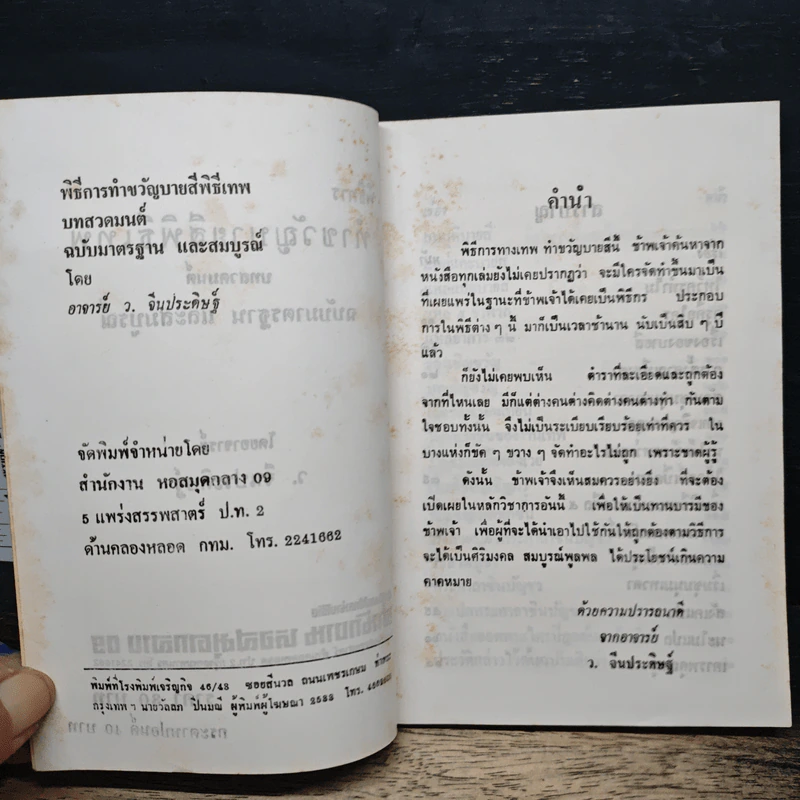 พิธีการทำขวัญบายสีพิธีเทพ
บทสวดมนต์
ฉบับมาตรฐาน และสมบูรณ์
โดย
อาจารย์ ว. จีนประดิษฐ์
จัดพิมพ์จำหน่ายโดย
สำนักงาน หอสมุดกลาง 09
5 แพร่งสรรพสาตร์ ป.ท. 2
ด้านคลองหลอด กทม. โทร. 2241662
พิมพ์ที่โรงพิมพ์เจริญกิจ 46/43 ซอยสีนวล ถนนเพชรเกษม
กรุงเทพฯ นายวัลลภ ปิ่นมณี ผู้พิมพ์ผู้โฆษณา 2533 โทร.
คำนำ
พิธีการทางเทพ ทำขวัญบายสีนี้ ข้าพเจ้าค้นหาจาก
หนังสือทุกเล่มยังไม่เคยปรากฏว่า จะมีใครจัดทำขึ้นมาเป็น
ที่เผยแพร่ในฐานะที่ข้าพเจ้าได้เคยเป็นพิธีกร ประกอบ
การในพิธีต่าง ๆ นี้ มาก็เป็นเวลาช้านาน นับเป็นสิบ ๆ ปี
แล้ว
ก็ยังไม่เคยพบเห็น ตำราที่ละเอียดและถูกต้อง
จากที่ไหนเลย มีก็แต่ต่างคนต่างคิดต่างคนต่างทำ กันตาม
ใจชอบทั้งนั้น จึงไม่เป็นระเบียบเรียบร้อยเท่าที่ควร ใน
บางแห่งก็ขัด ๆ ขวาง ๆ จัดทำอะไรไม่ถูก เพราะขาดผู้รู้
ดังนั้น ข้าพเจ้าจึงเห็นสมควรอย่างยิ่ง ที่จะต้อง
เปิดเผยในหลักวิชาการอันนี้ เพื่อให้เป็นทานบารมีของ
ข้าพเจ้า เพื่อผู้ที่จะได้นำเอาไปใช้กันให้ถูกต้องตามวิธีการ
จะได้เป็นศิริมงคล สมบูรณ์พูลผล ได้ประโยชน์เกินความ
คาดหมาย
ด้วยความปรารถนาดี
จากอาจารย์
ว. จีนประดิษฐ์